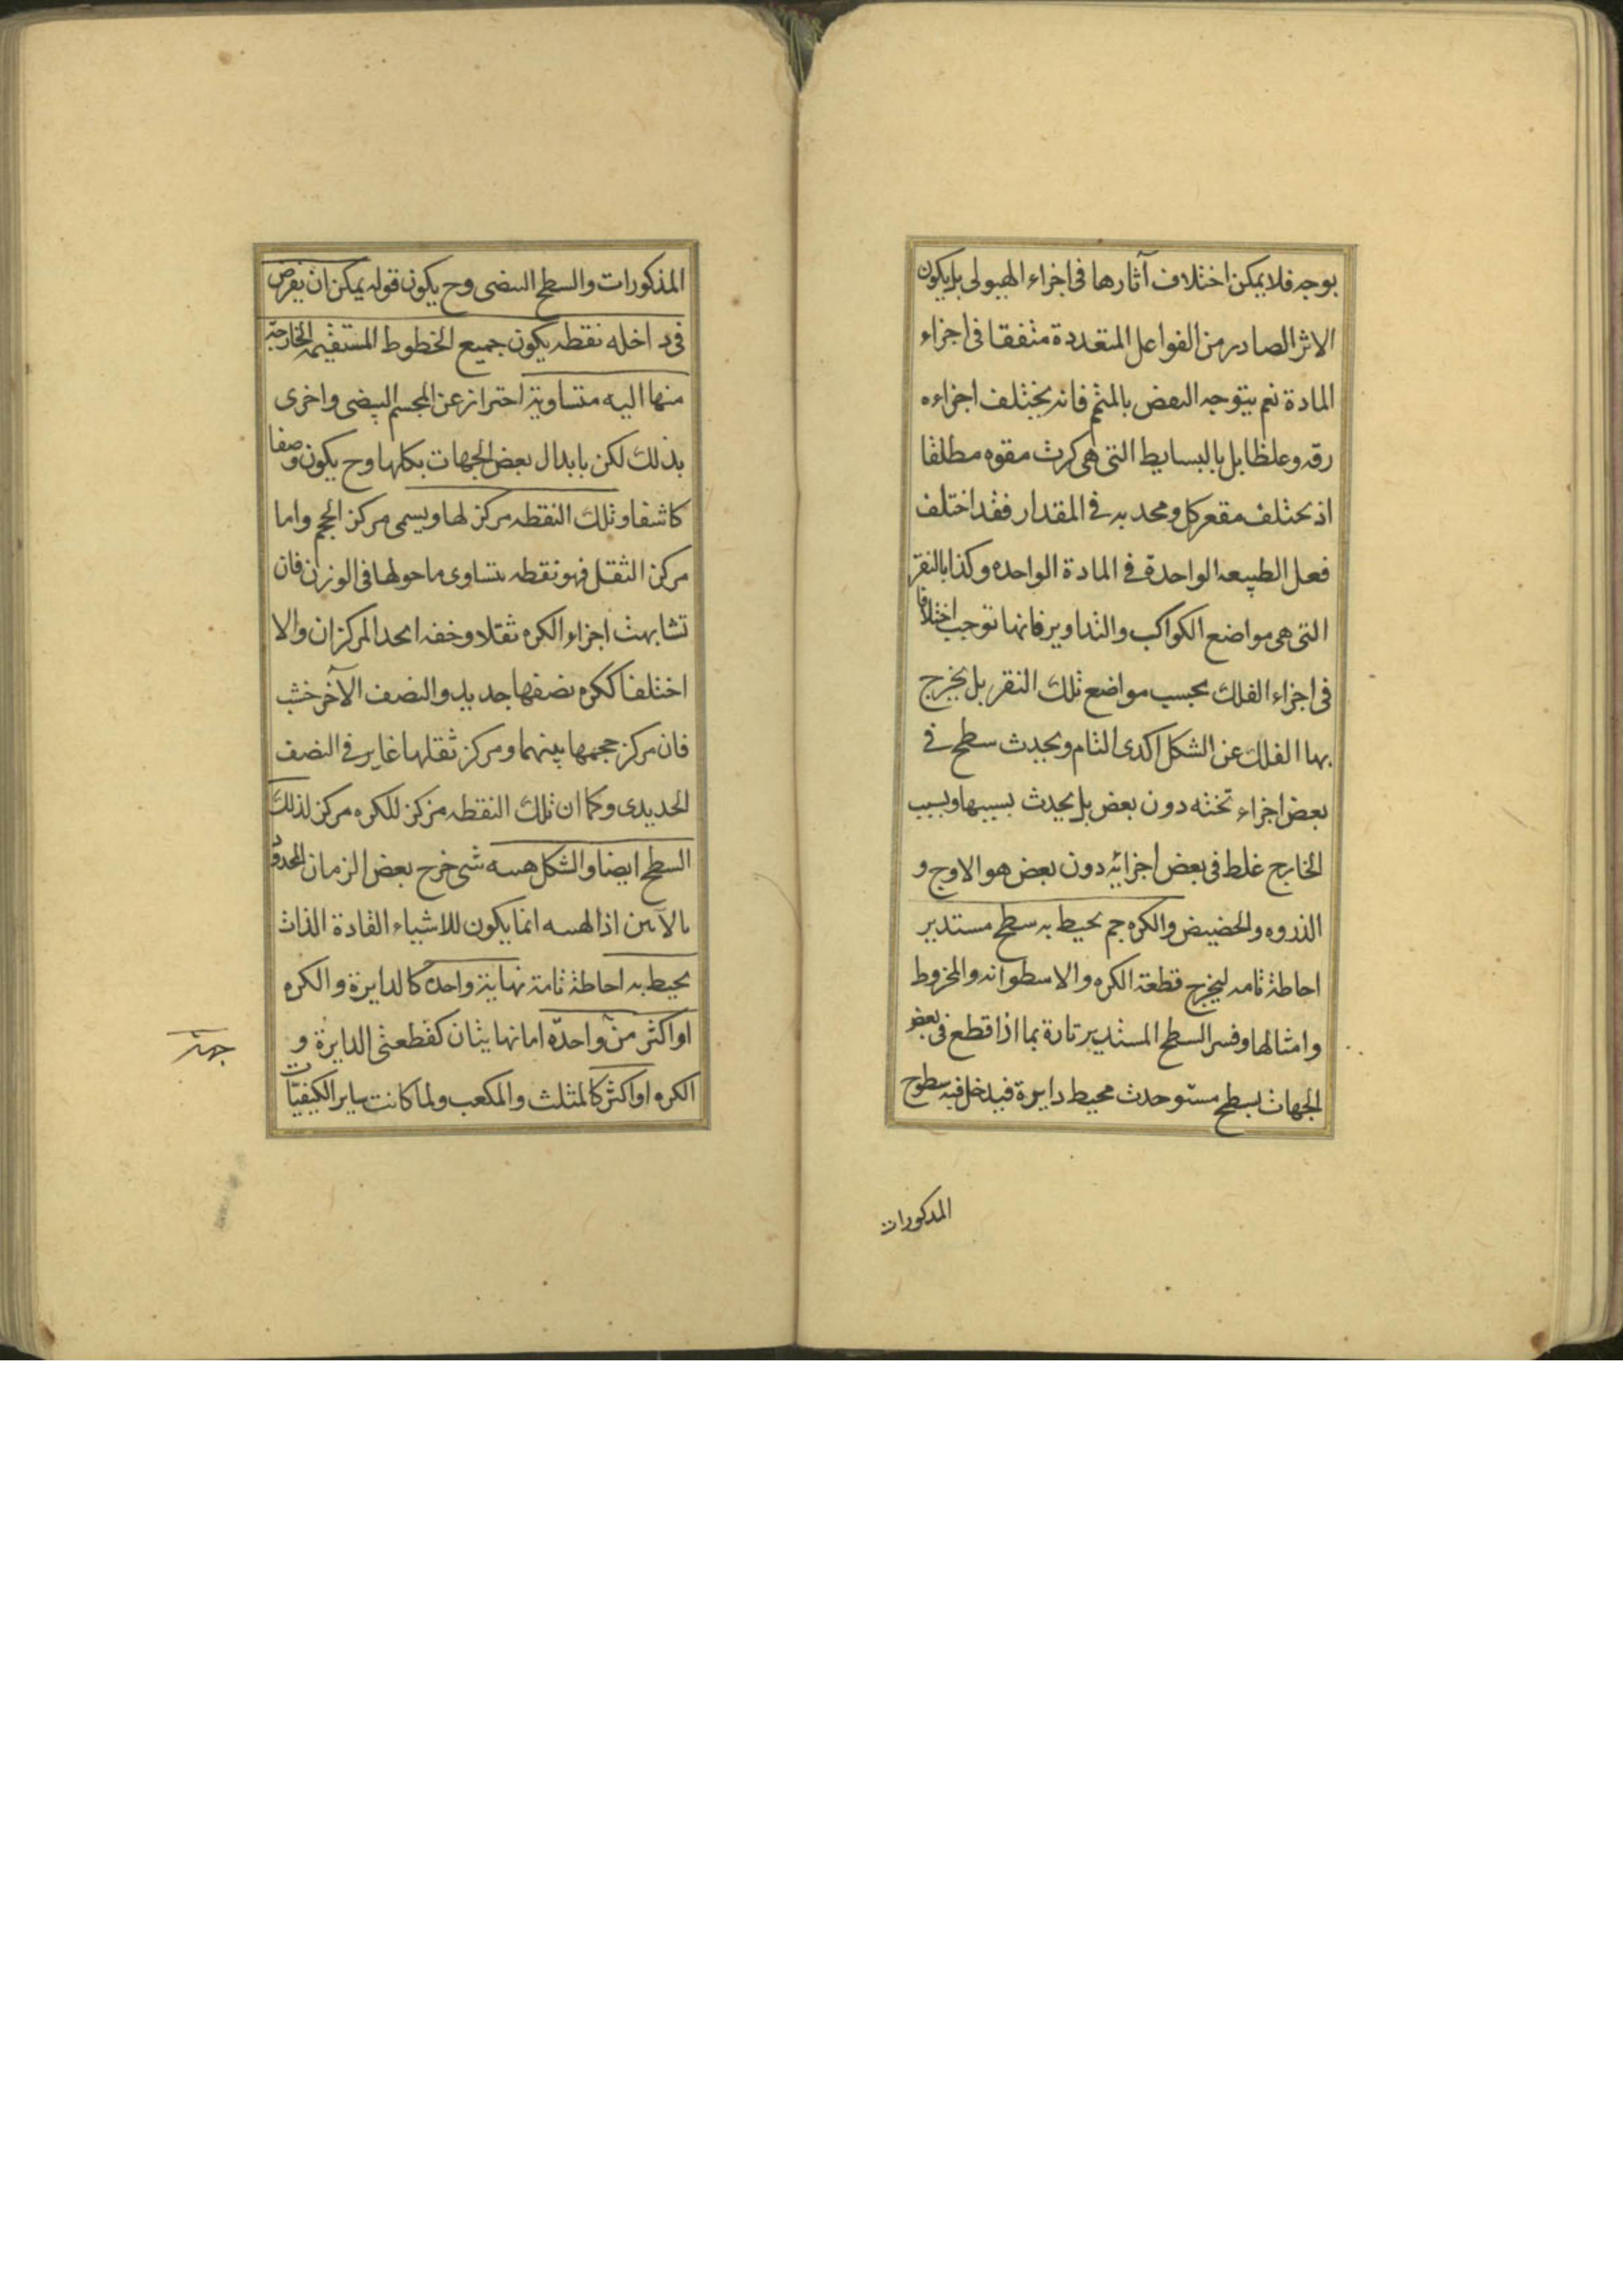 بوجه فلا يمكن اختلاف آثارها فى اجزاء الهيولى بل يكون
الاثر الصادر من الفواعل المتعددة متفقا فى اجزاء
المادة نعم يتوجه النقض بالمتمم فانه يختلف اجزاءه
رقه وغلظا بل بالبسايط التى هى كرت مقوه مطلقا
اذ يختلف مقعر كل ومحدبه فى المقدار فقد اختلف
فعل الطبيعه الواحدة فى المادة الواحده وكذا بالنقر
التى هى مواضع الكواكب والتداوير فانها توجب اختلافا
فى اجزاء الفلك بحسب مواضع تلك النقر بل يخرج
بها الفلك عن الشكل اكدى التام ويحدث سطح فى
بعض اجزاء تخنه دون بعض بل يحدث بسببها وبسبب
الخارج غلط فى بعض اجزائه دون بعض هو الاوج و
الذروه والحضيض والكره جم يحيط به سطح مستدير
احاطة تامه ليخرج قطعة الكره والاسطوانه والمخروط
وامثالها وفسر السطح المستدير تارة بما اذا قطع فى بعض
الجهات بسطح مستو حدث محيط دايرة فيدخل فيه سطوح
المذكورات
المذكورات والسطح البيضى وح يكون قوله يمكن ان يفرض
فى داخله نقطه يكون جميع الخطوط المستقيمه الخارجة
منها اليه متساوية احتراز عن المجسم البيضى واخرى
بذلك لكن بابدال بعض الجهات بكلها وح يكون وصفا
كاشفا وتلك النقطه مركز لها ويسمى مركز الحجم واما
مركز الثقل فهو نقطه يتساوى ما حولها فى الوزن فان
تشابهت اجزاء الكره ثقلا وخفه اتحد المركزان والا
اختلفا ككره نصفها حديد والنصف الآخر خشب
فان مركز حجمها بينهما ومركز ثقلها غاير فى النصف
الحديدى وكما ان تلك النقطه مركز للكره مركز لذلك
السطح ايضا والشكل هيئه شى خرج بعض الزمان المحدود
بالآنين اذ الهيئه انما يكون للاشياء القادة الذات
يحيط به احاطة تامة نهاية واحده كالدايرة والكره
او اكثر من واحدة اما نهايتان كقطعتى الدايرة و
جهة
الكره او اكثر كالمثلث والمكعب ولما كانت ساير الكيفيات